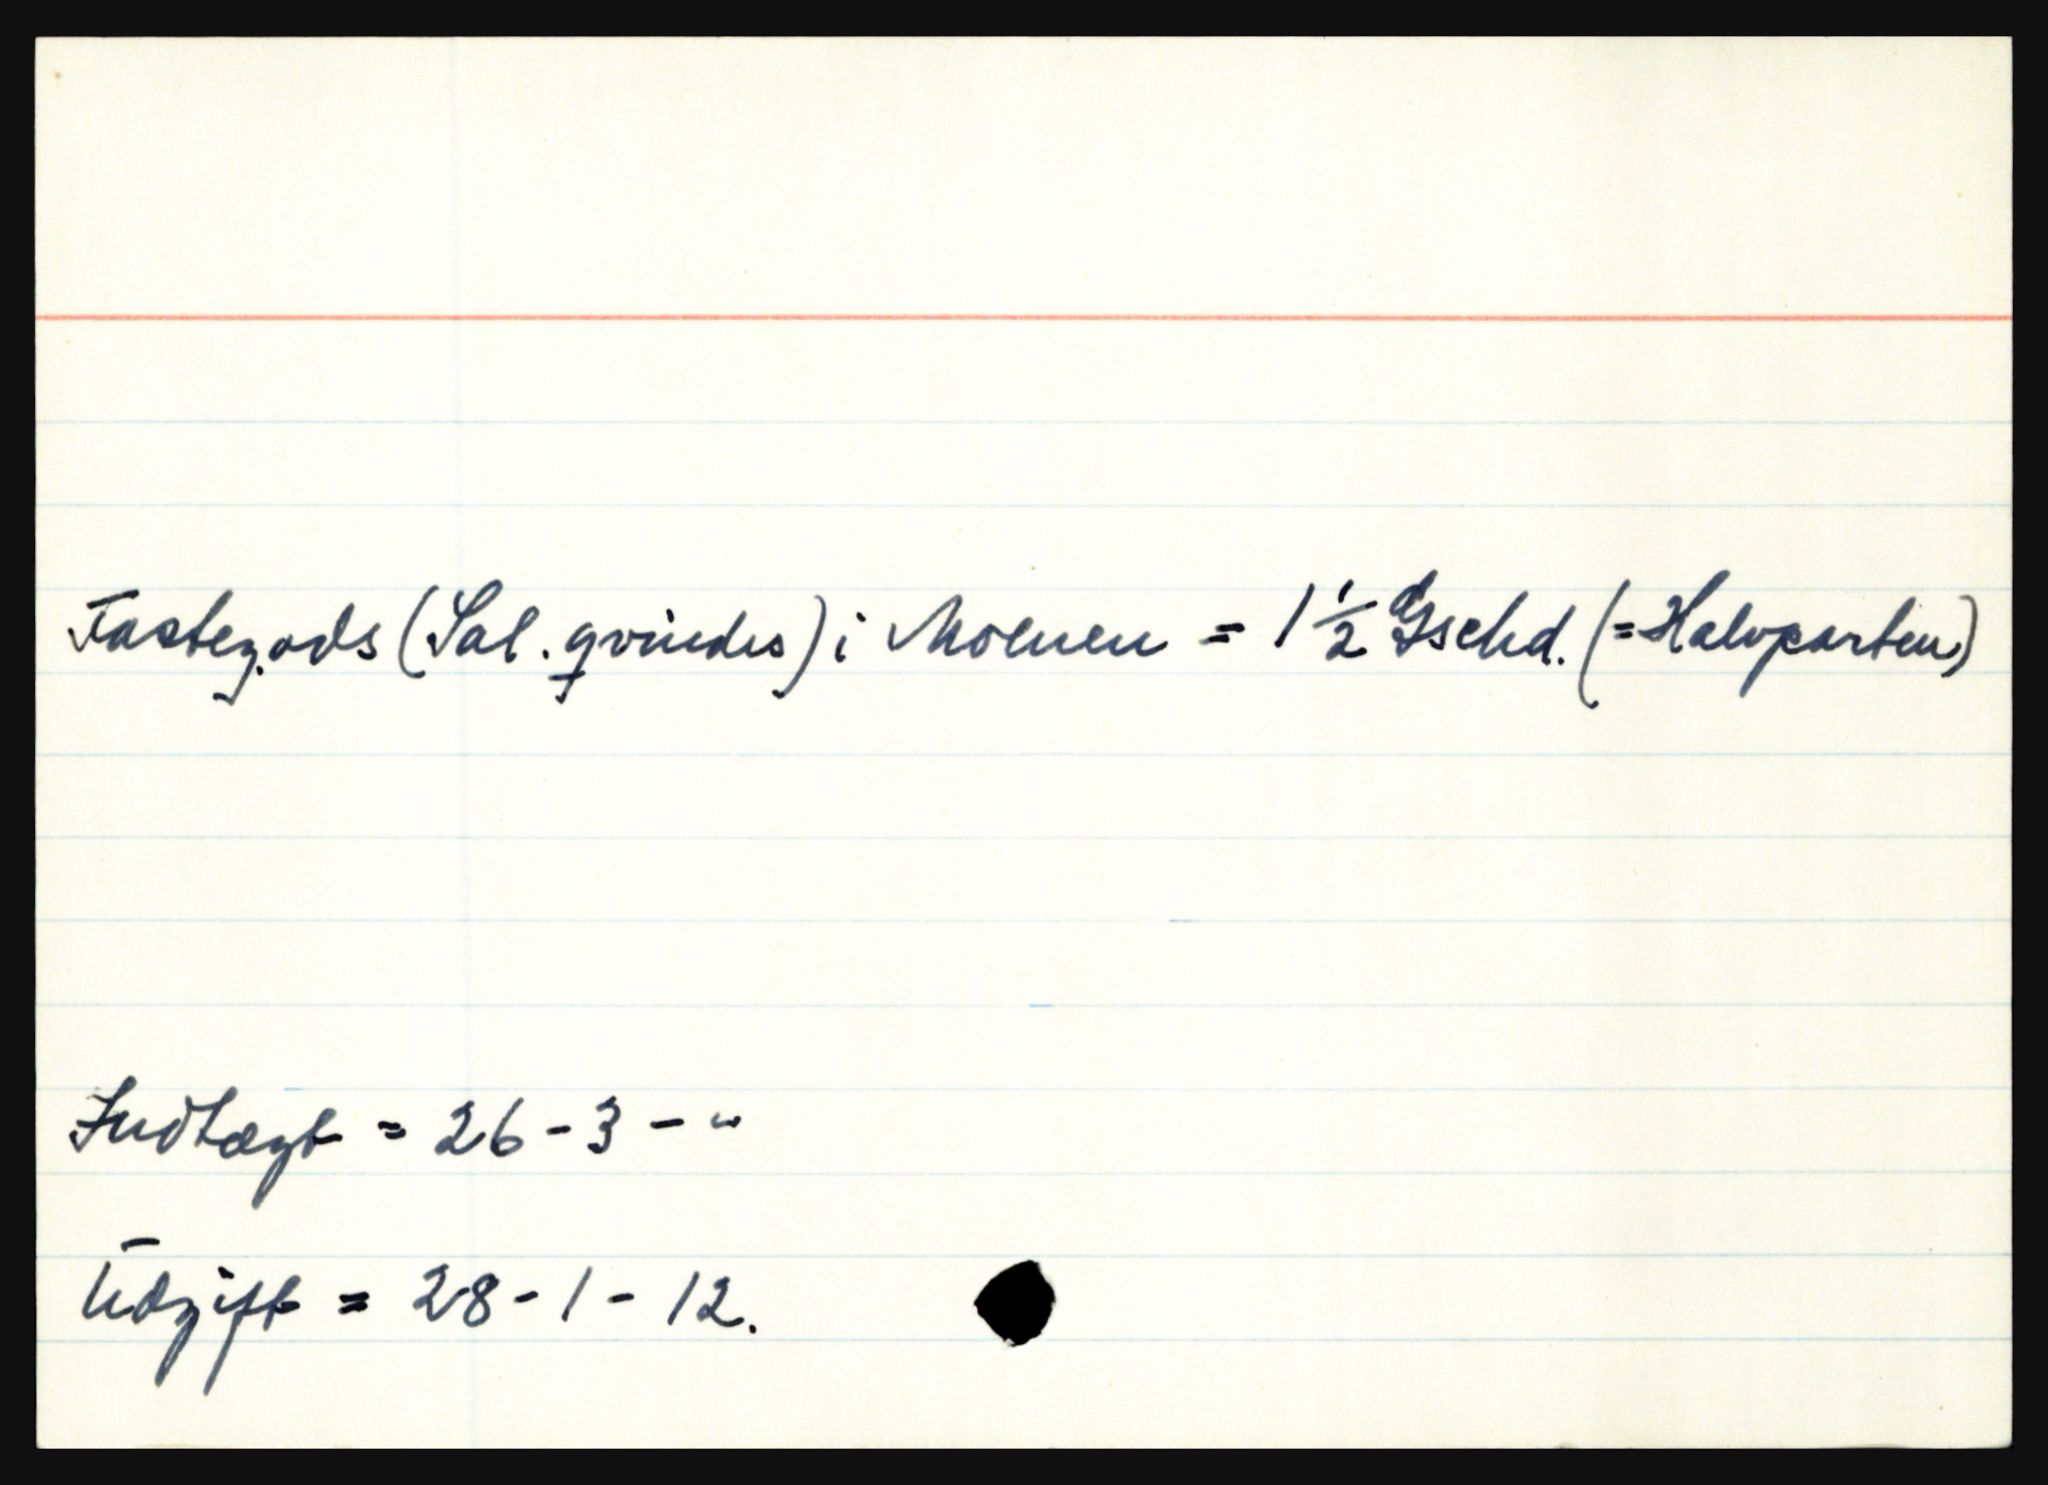 Fastegods (Sal. qvindes) i Moenen = 1 1/2 Gschd. (= Halvparten)
Indtægt = 26 - 3 - "
Udgift = 28 - 1 - 12.